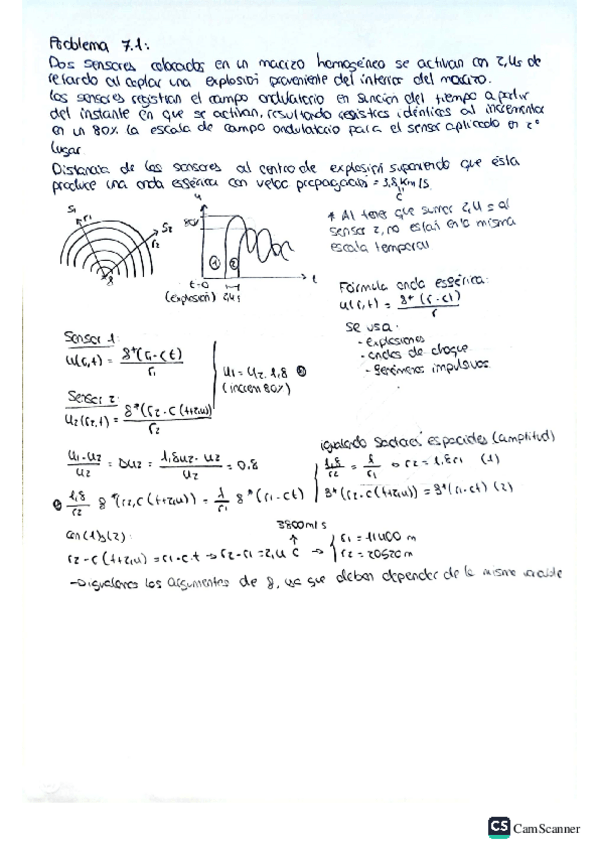 Problema 7.1:
Dos sensores colocados en un macizo homogéneo se activan con 2,4s de
retardo al captar una explosión proveniente del interior del macizo.
Los sensores registran el campo ondulatorio en función del tiempo a partir
del instante en que se activan, resultando registros idénticos al incrementar
en un 80% la escala de campo ondulatorio para el sensor aplicado en 2º
lugar
Distancia de los sensores al centro de explosión suponiendo que ésta
produce una onda esférica con veloc propagación = 3,8 Km/s
c
S1
r1
S2
r2
u
80%
① ②
t=0
t
(explosión) 2,4s
* Al tener que sumar 2,4s al
sensor 2, no están en la misma
escala temporal
Fórmula onda esférica:
u(r,t) = g+(r-ct)
r
Se usa:
- explosiones
- ondas de choque
- fenómenos impulsivos
Sensor 1:
u(r,t) = g+(r1-ct)
r1
Sensor 2:
u2(r2,t) = g+(r2-c(t+2,4))
r2
u1 = u2·1,8
(increm 80%)
u1-u2 = Δu2 = 1,8u2-u2 = 0.8
u2 u2
1,8 g+(r2,c(t+2,4)) = 1 g+(r1-ct)
r2 r1
igualando factores espaciales (amplitud)
1,8 = 1 → r2 = 1,8r1 (1)
r2 r1
g+(r2-c(t+2,4)) = g+(r1-ct) (2)
Con (1)y(2):
3800m/s
r2-c(t+2,4) = r1-ct → r2-r1 = 2,4 c → r1 = 11400 m
r2 = 20520 m
→ igualamos los argumentos de g, ya que deben depender de la misma variable
CS CamScanner